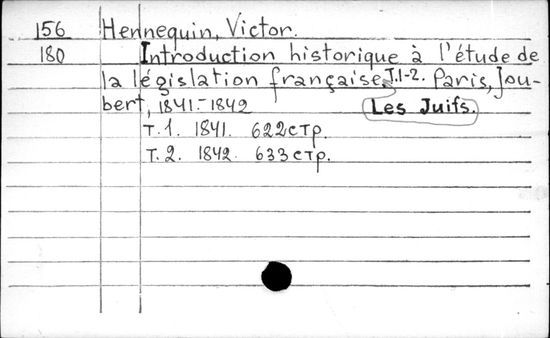 156 Hennequin, Victor.
180 Introduction historique à l'étude de
la législation française. T.1-2. Paris, Jou-
bert, 1841-1842
Les Juifs.
т. 1. 1841. 622 стр.
т. 2. 1842. 633 стр.